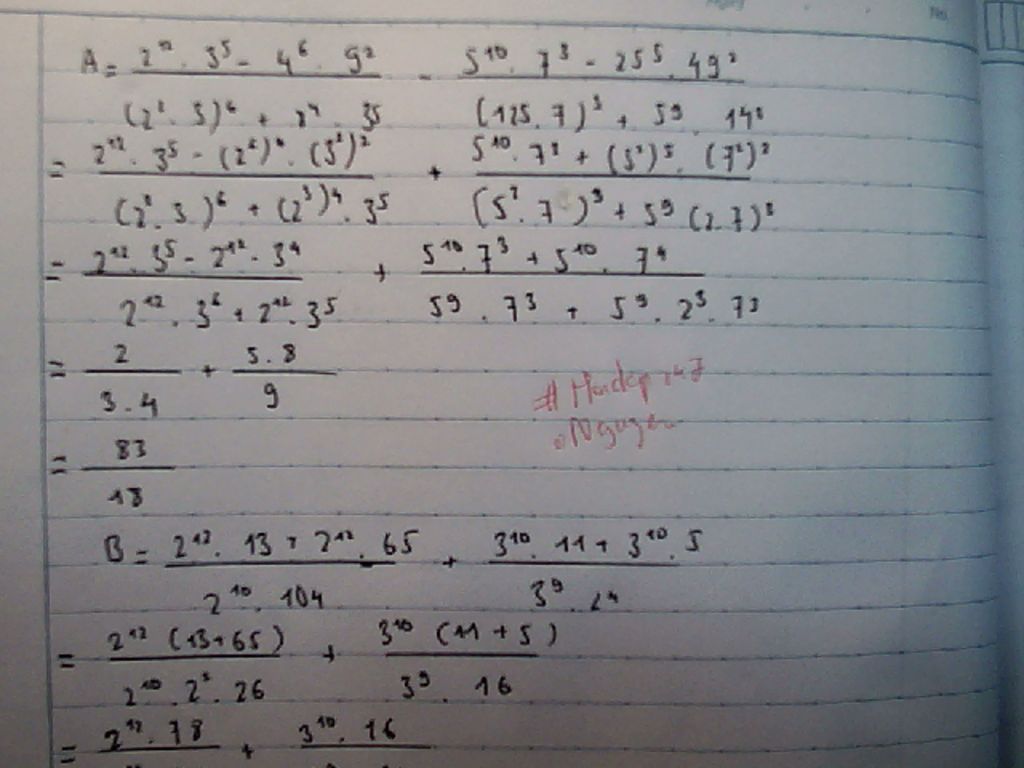 A = (2¹² . 3⁵ - 4⁶ . 9²) / ((2² . 3)⁶ + 2⁴ . 35) - (5¹⁰ . 7³ - 25⁵ . 49²) / ((125 . 7)³ + 59 . 14³)
= (2¹² . 3⁵ - (2²)⁶ . (3²)²) / ((2² . 3)⁶ + (2³)⁴ . 3⁵) + (5¹⁰ . 7³ + (5²)⁵ . (7²)²) / ((5³ . 7)³ + 5⁹ (2.7)³)
= (2¹² . 3⁵ - 2¹² . 3⁴) / (2¹² . 3⁶ + 2¹² . 3⁵) + (5¹⁰ . 7³ + 5¹⁰ . 7⁴) / (5⁹ . 7³ + 5⁹ . 2³ . 7³)
= 2 / (3 . 4) + (5 . 8) / 9
= 83 / 18
B = (2¹² . 13 + 2¹² . 65) / (2¹⁰ . 104) + (3¹⁰ . 11 + 3¹⁰ . 5) / (3⁹ . 2⁴)
= (2¹² (13+65)) / (2¹⁰ . 2² . 26) + (3¹⁰ (11 + 5)) / (3⁹ . 16)
= 2¹² . 78 + 3¹⁰ . 16